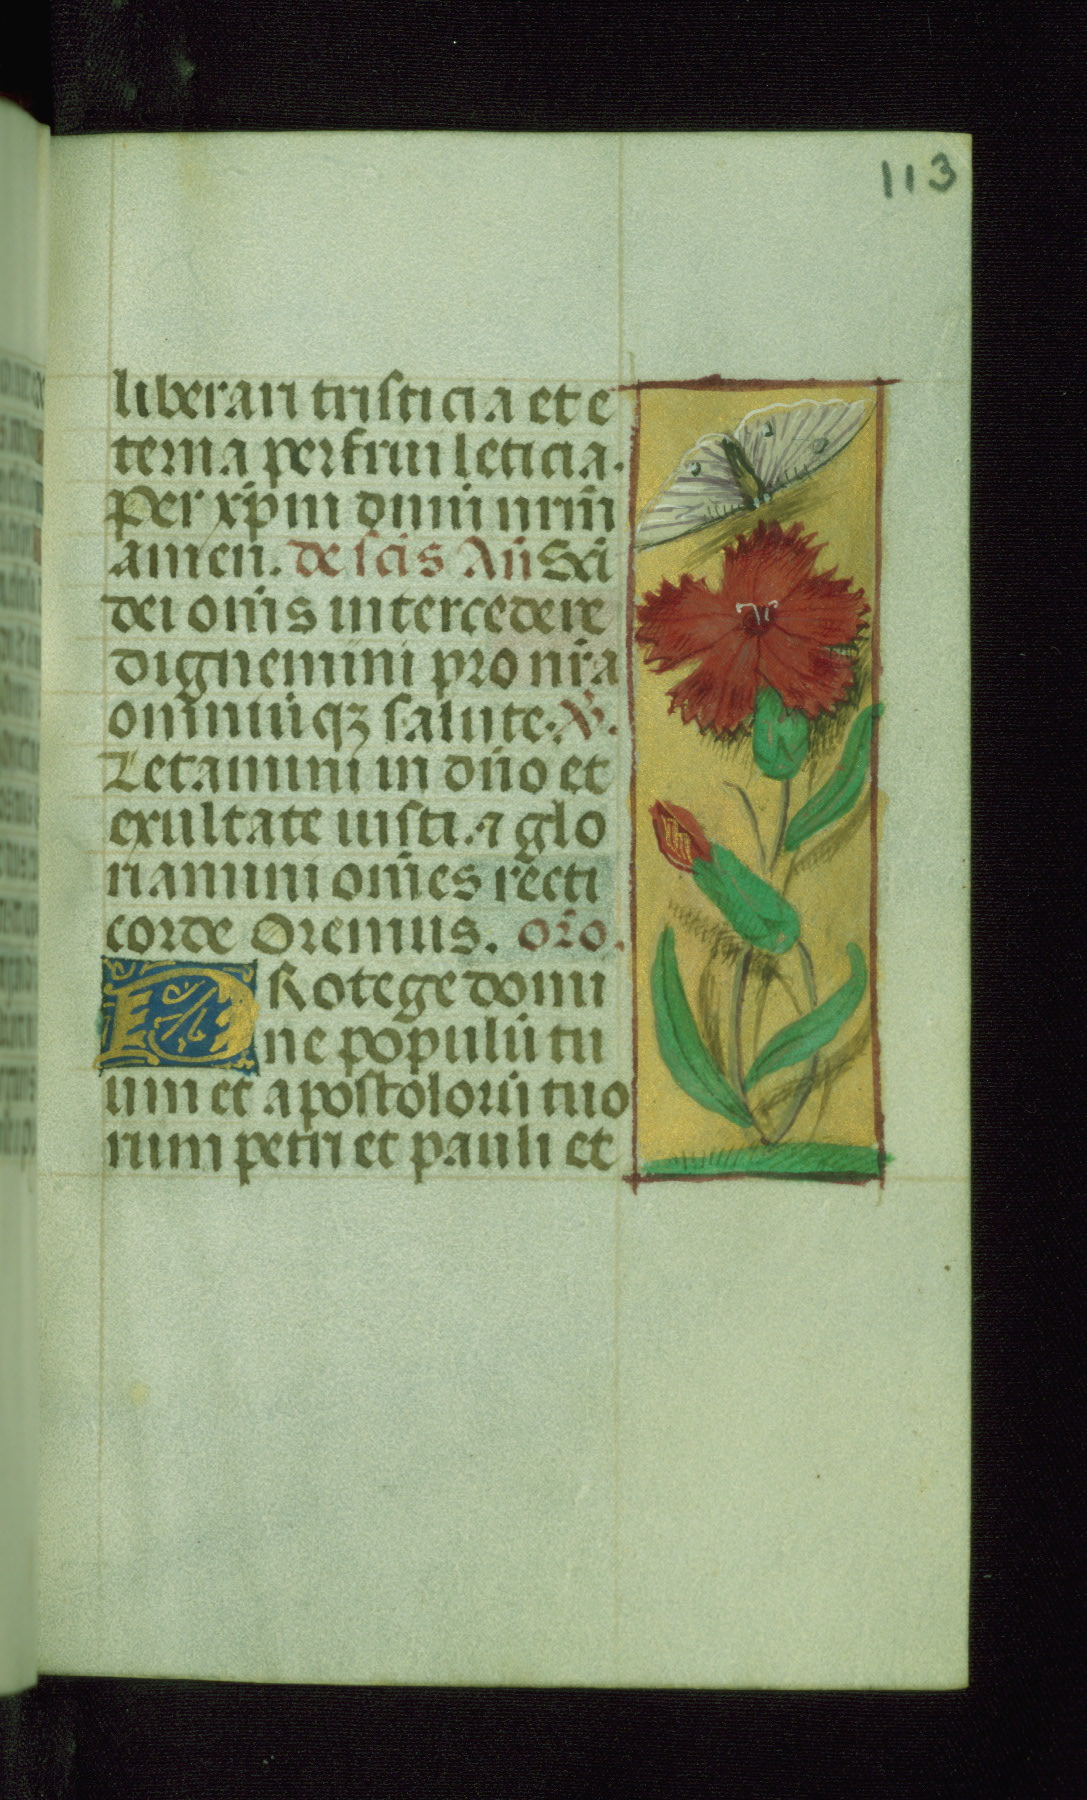 113
liberari tristicia et e
terna perfrui leticia.
Per xp̄m dn̄m nr̄m
amen. de sc̄is An̄ Sc̄i
dei om̄s intercedere
dignemini pro nr̄a
omniūqꝫ salute. ℣.
Letamini in dn̄o et
exultate iusti. ⁊ glo
riamini om̄es recti
corde Oremus. or̄o.
PRotege domi
ne populū tu
um et apostolorū tuo
rum petri et pauli et